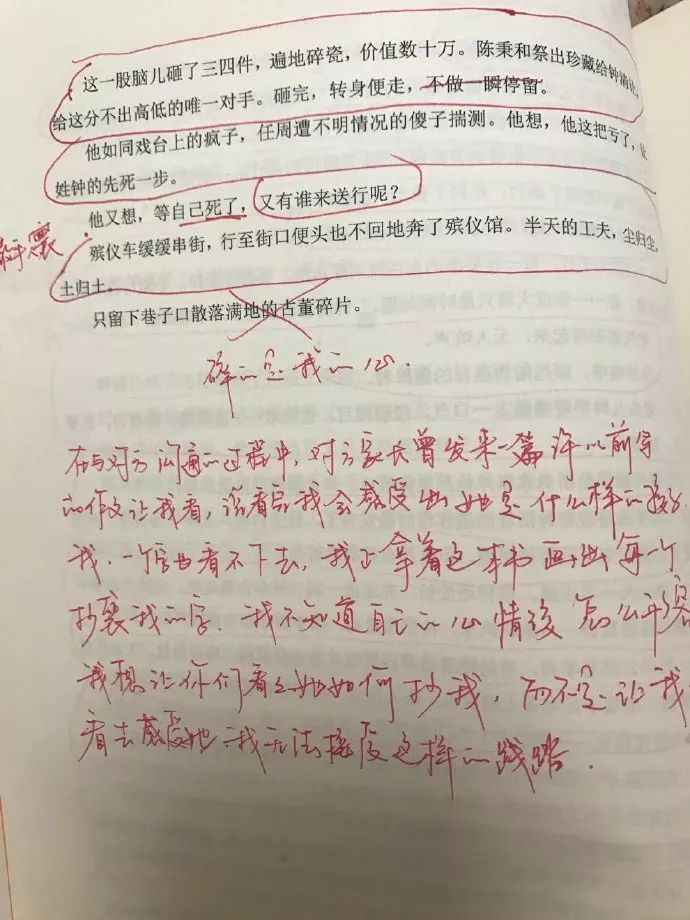 这一股脑儿砸了三四件，遍地碎瓷，价值数十万。陈秉和祭出珍藏给钟
给这分不出高低的唯一对手。砸完，转身便走，不做一瞬停留。
他如同戏台上的疯子，任周遭不明情况的傻子揣测。他想，他这把亏了，让
姓钟的先死一步。
他又想，等自己死了，又有谁来送行呢？
殡仪车缓缓串街，行至街口便头也不回地奔了殡仪馆。半天的工夫，尘归尘，
土归土。
只留下巷子口散落满地的古董碎片。
碎的是我的心.
在与对方沟通的过程中，对方家长曾发来一篇许以前写
的作文让我看，说看完我会感受出她是什么样的孩子
我，一个字也看不下去，我正拿着这本书画出每一个
抄袭我的字．我不知道自己的心情该怎么平缓
我想让你们看看她如何抄我，而不是让我
看去感受她．我无法接受这样的践踏．